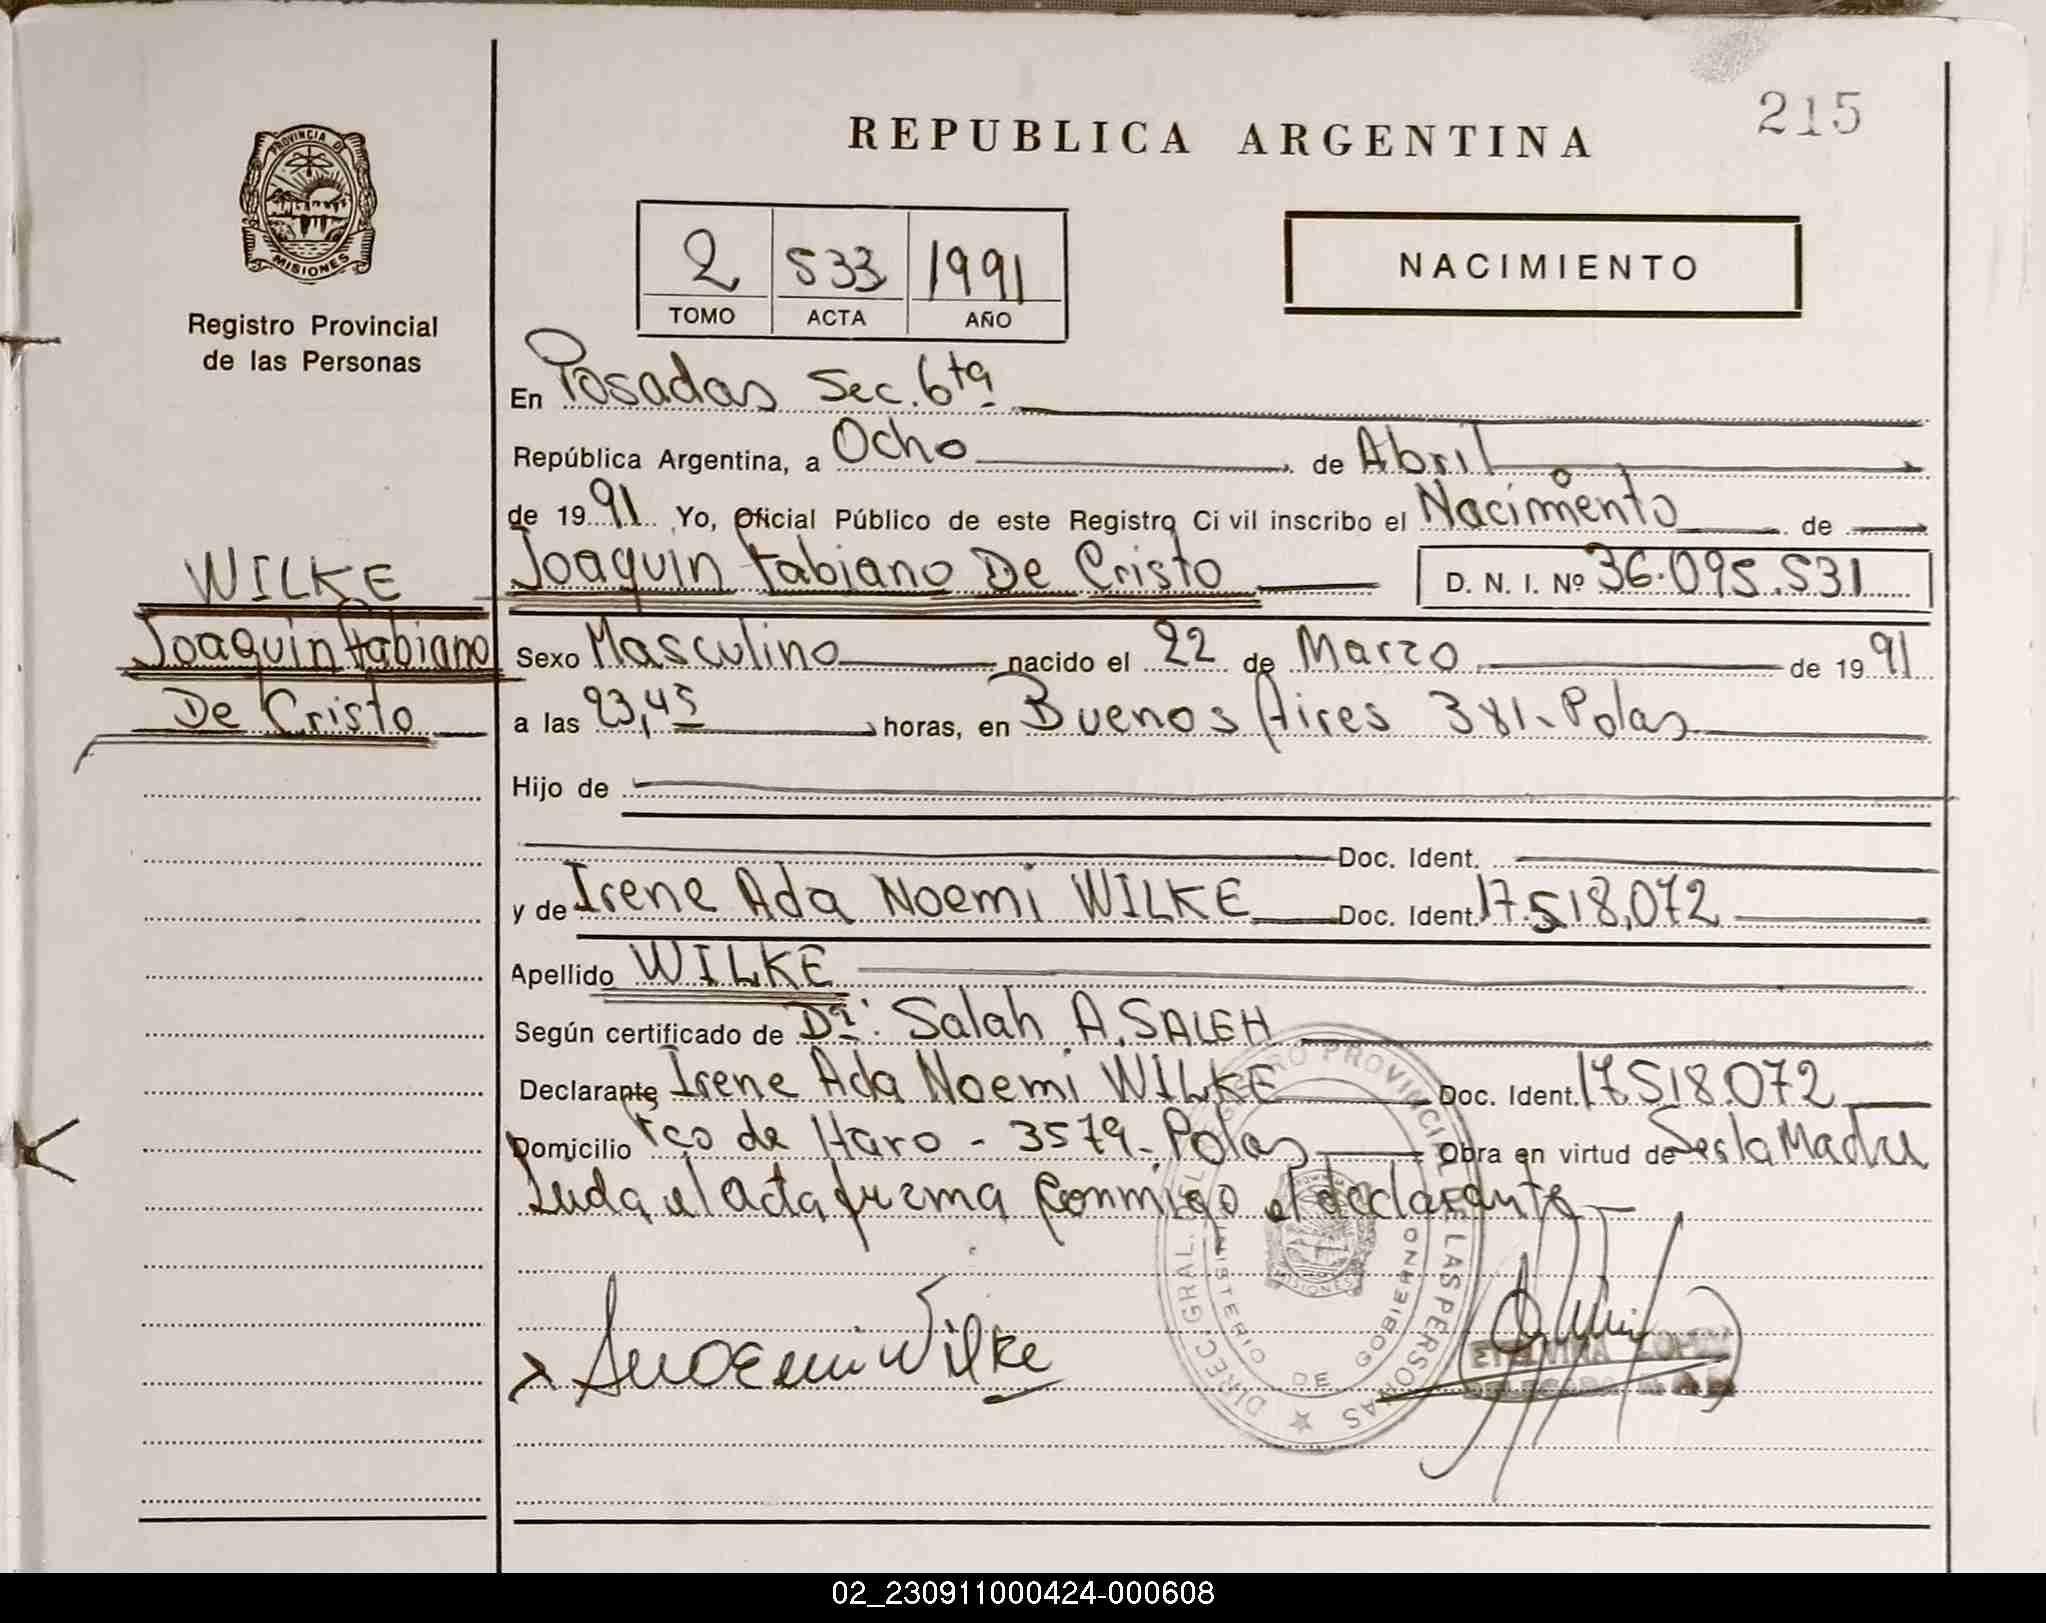 215
REPUBLICA ARGENTINA
PROVINCIA DE
MISIONES
Registro Provincial
de las Personas
2 533 1991
TOMO ACTA AÑO
NACIMIENTO
En Posadas Sec. 6ta
República Argentina, a Ocho de Abril
de 1991 Yo, Oficial Público de este Registro Civil inscribo el Nacimiento de
Joaquin Fabiano De Cristo D. N. I. Nº 36.095.531
WILKE
Joaquin Fabiano
De Cristo
Sexo Masculino nacido el 22 de Marzo de 1991
a las 23,45 horas, en Buenos Aires 381 - Pdas
Hijo de
Doc. Ident.
y de Irene Ada Noemi WILKE Doc. Ident. 17.518,072
Apellido WILKE
Según certificado de Salah A. SALEH
Declarante Irene Ada Noemi WILKE Doc. Ident. 17.518.072
Domicilio Fco de Haro - 3579 - Pdas Obra en virtud de Ser la Madre
Leida el acta firma conmigo el declarante
Noemi Wilke
DIREC. GRAL. DEL REGISTRO PROVINCIAL DE LAS PERSONAS
MINISTERIO DE GOBIERNO
MISIONES
ETELVINA LOPEZ
DELEGADA
02_230911000424-000608